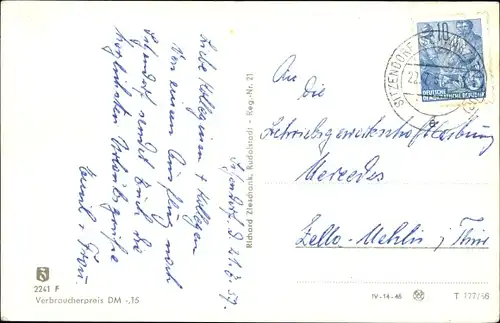 Sitzendorf, d. 21.7.57.
Liebe Kolleginnen + Kollegen
Von einem Ausflug nach
Sitzendorf sendet Euch die
herzlichsten Urlaubsgrüße
+ Frau.
An die
Betriebsgewerkschaftsleitung
Mercedes
Zella-Mehlis / Thür
SITZENDORF
10
DEUTSCHE
DEMOKRATISCHE REPUBLIK
Richard Zieschank, Rudolstadt - Reg.-Nr. 21
2241 F
Verbraucherpreis DM -,15
IV-14-45
T 777/56